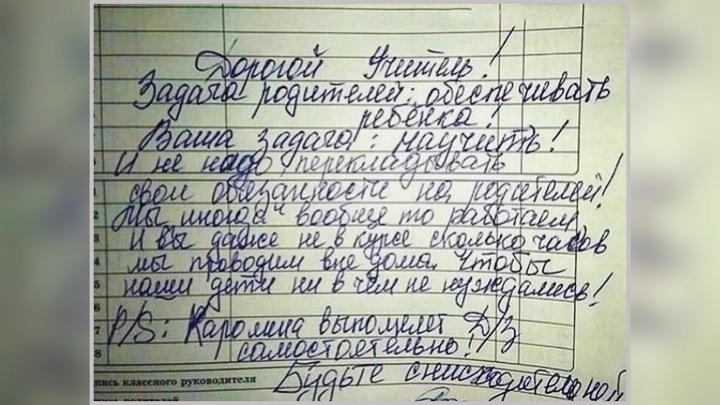 Дорогой Учитель!
Задача родителей: обеспечивать
ребёнка!
Ваша задача: научить!
И не надо перекладывать
свои обязанности на родителей!
Мы иногда вообще то работаем
и вы даже не в курсе сколько часов
мы проводим вне дома. Чтобы
наши дети ни в чем не нуждались!
P/S: Каролина выполняет Д/З
самостоятельно!
пись классного руководителя
Будьте снисходительной